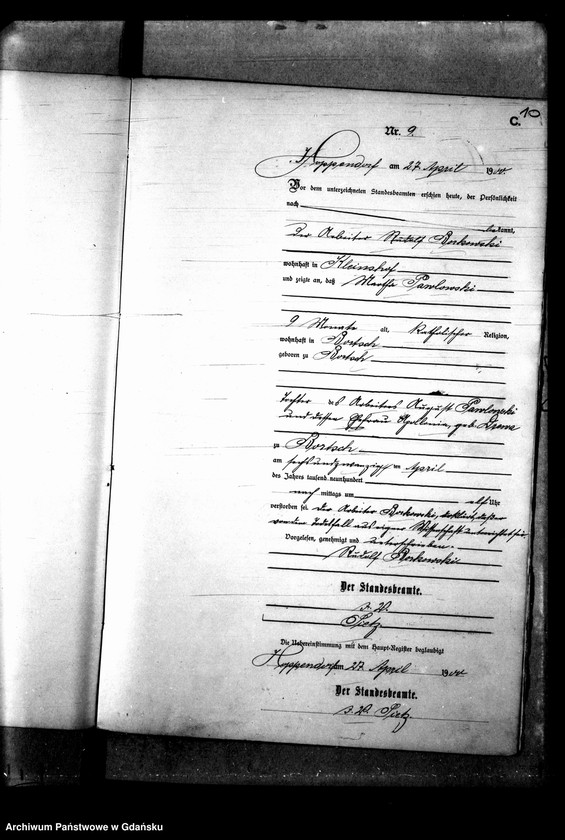 C. 10
Nr. 9.
Hoppendorf am 27 April 1900
Vor dem unterzeichneten Standesbeamten erschien heute, der Persönlichkeit
nach
bekannt,
der Arbeiter Rudolf Borkowski
wohnhaft in Kleinshof
und zeigte an, daß Martha Pawlowski
9 Monate alt, katholischer Religion,
wohnhaft in Bortsch
geboren zu Bortsch
Tochter des Arbeiters August Pawlowski
und dessen Ehefrau Apollonia, geb.
zu Bortsch
am sechsundzwanzigsten April
des Jahres tausend neunhundert
nach mittags um elf Uhr
verstorben sei. Der Arbeiter Borkowski, erklärt, daß er
von dem Todesfall aus eigner Wissenschaft unterrichtet sei.
Vorgelesen, genehmigt und unterschrieben.
Rudolf Borkowski
Der Standesbeamte.
i. V.
Pietz
Die Uebereinstimmung mit dem Haupt-Register beglaubigt
Hoppendorf am 27 April 1900
Der Standesbeamte.
i. V. Pietz.
Archiwum Państwowe w Gdańsku